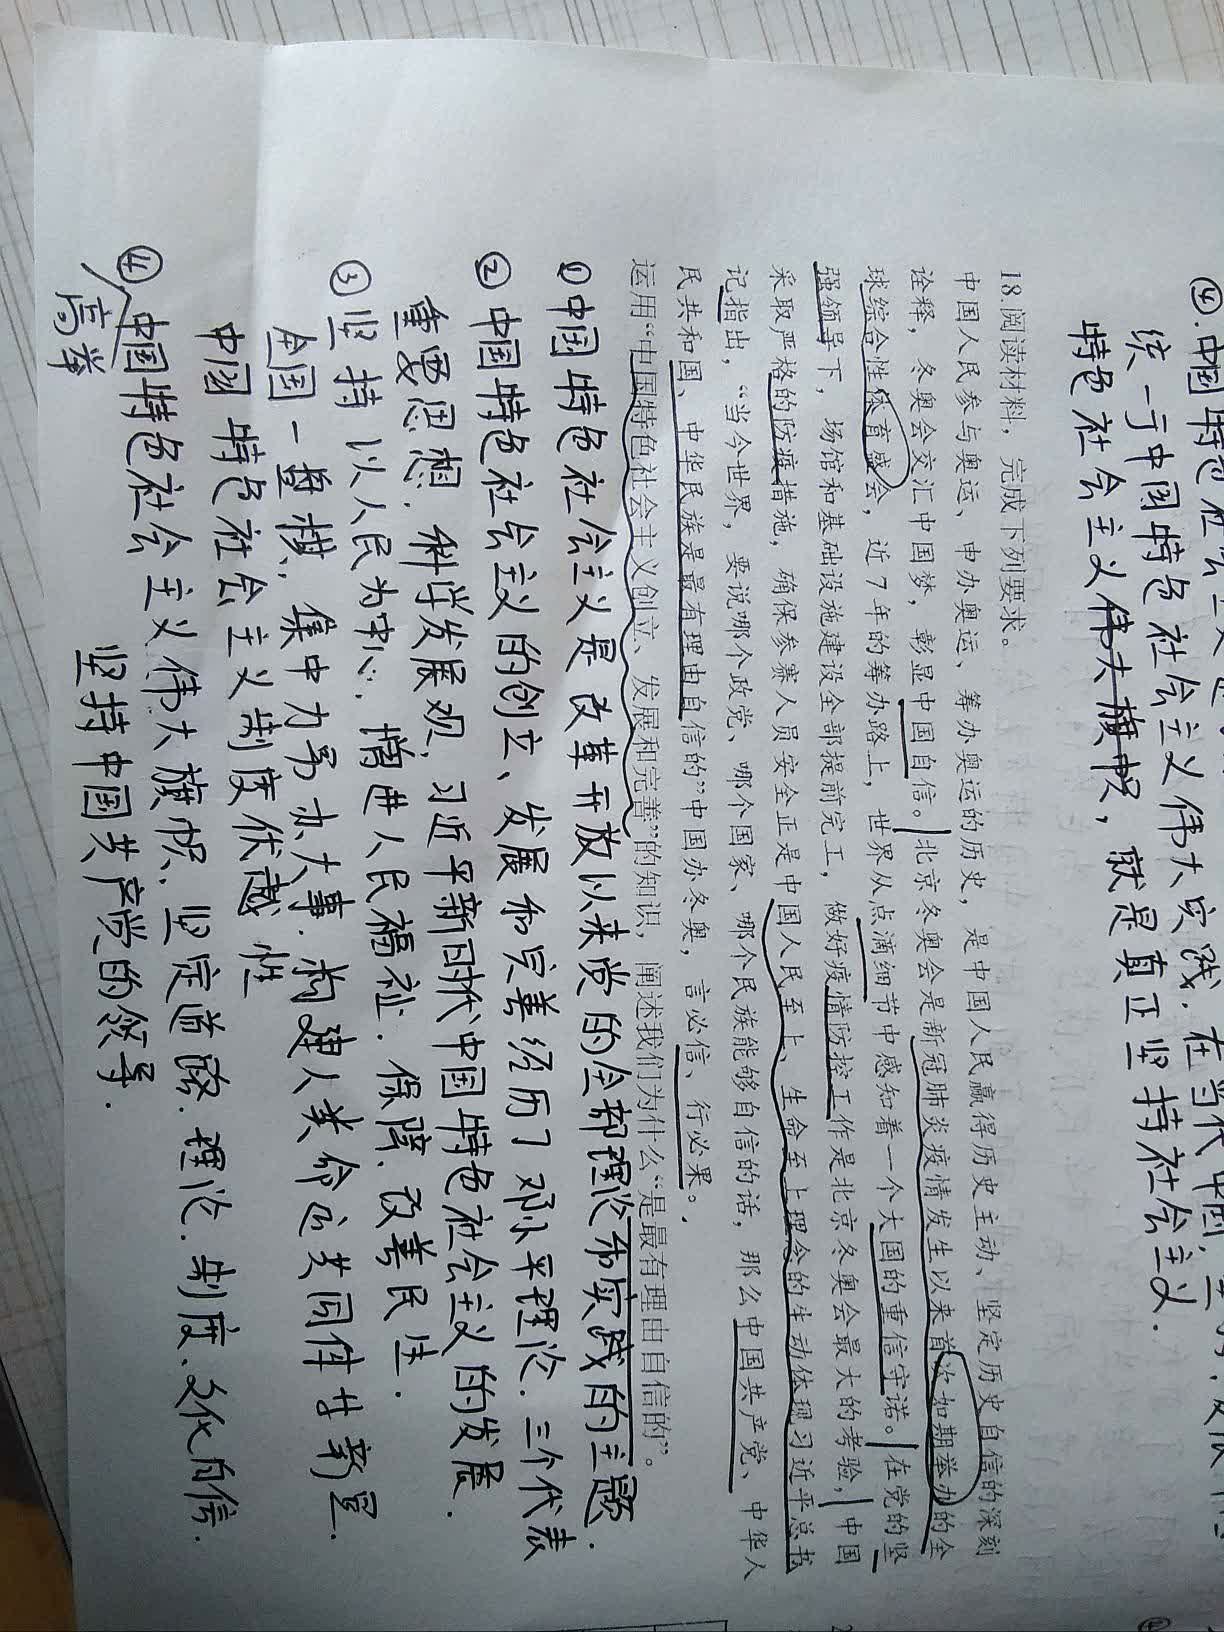 ④.中国特色社会主义是
统一于中国特色社会主义伟大实践，在当代中国，坚
特色社会主义伟大旗帜，就是真正坚持社会主义.
18.阅读材料，完成下列要求。
中国人民参与奥运、申办奥运、筹办奥运的历史，是中国人民赢得历史主动、坚定历史自信的深刻
诠释，冬奥会交汇中国梦，彰显中国自信。北京冬奥会是新冠肺炎疫情发生以来首次如期举办的全
球综合性体育盛会，近7年的筹办路上，世界从点滴细节中感知着一个大国的重信守诺。在党的坚
强领导下，场馆和基础设施建设全部提前完工，做好疫情防控工作是北京冬奥会最大的考验，中国
采取严格的防疫措施，确保参赛人员安全正是中国人民至上、生命至上理念的生动体现习近平总书
记指出，“当今世界，要说哪个政党、哪个国家、哪个民族能够自信的话，那么中国共产党、中华人
民共和国、中华民族是最有理由自信的”中国办冬奥，言必信、行必果。
运用“中国特色社会主义创立、发展和完善”的知识，阐述我们为什么“是最有理由自信的”。
①中国特色社会主义是改革开放以来党的全部理论和实践的主题.
②中国特色社会主义的创立、发展和完善经历了邓小平理论.三个代表
重要思想.科学发展观，习近平新时代中国特色社会主义的发展.
③坚持以人民为中心，增进人民福祉.保障、改善民生.
全国一盘棋、集中力量办大事.构建人类命运共同体等彰显
中国特色社会主义制度优越性
④中国特色社会主义伟大旗帜.坚定道路.理论.制度、文化自信.
高举
坚持中国共产党的领导.